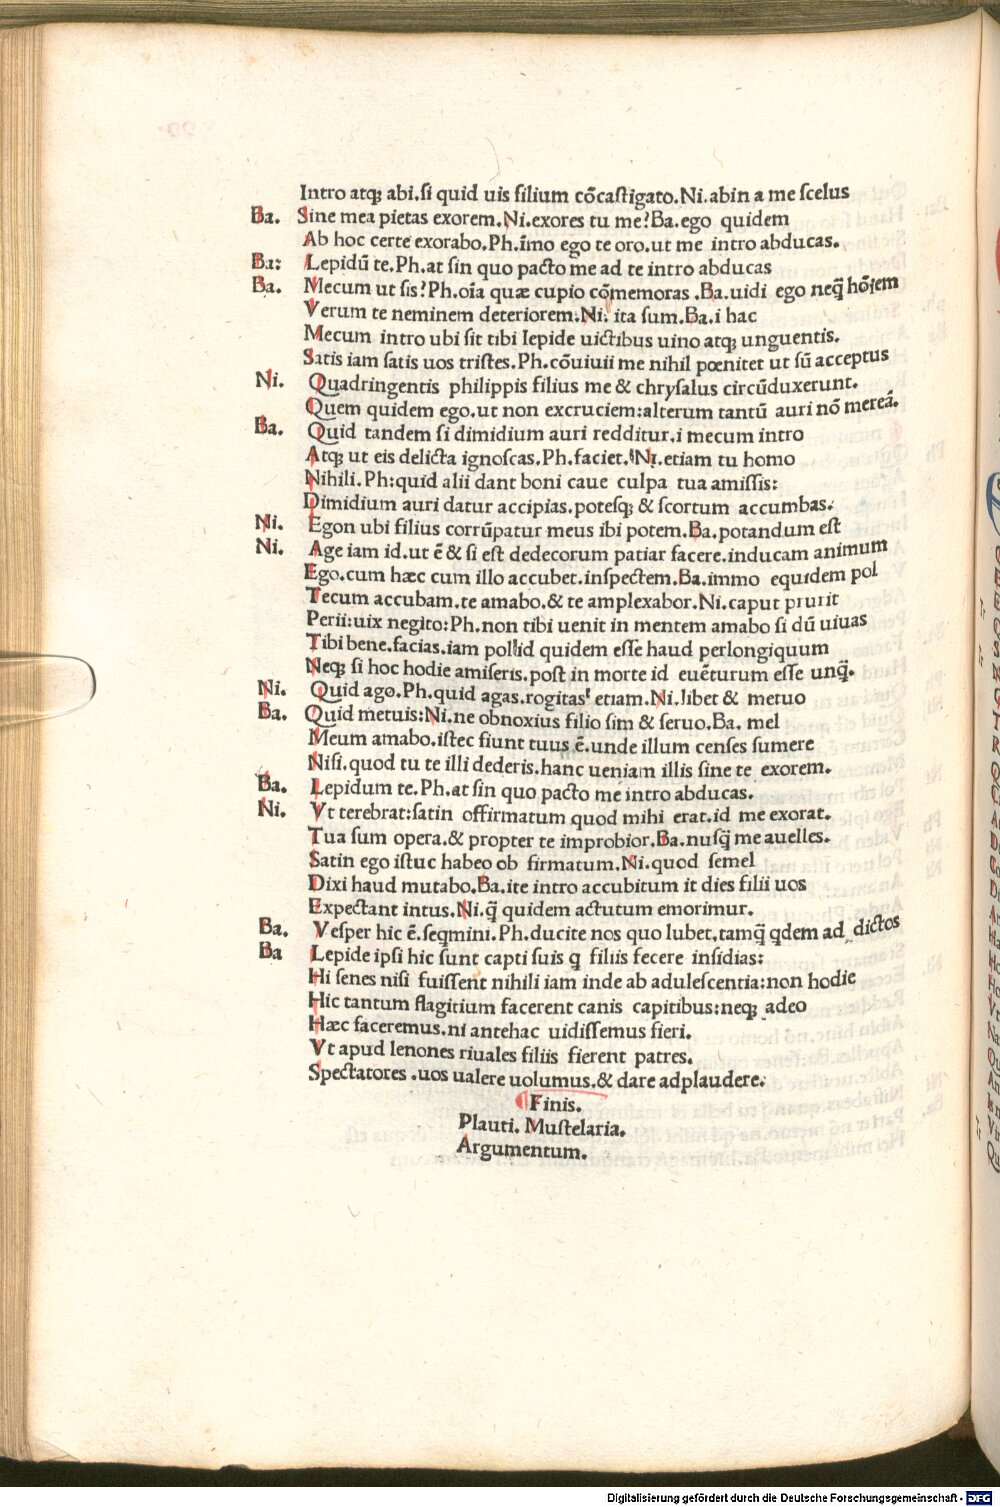 Intro atqꝫ abi.ſi quid uis filium cōcaſtigato.Ni.abin a me ſcelus
Ba. Sine mea pietas exorem.Ni.exores tu me?Ba.ego quidem
Ab hoc certe exorabo.Ph.īmo ego te oro.ut me intro abducas.
Ba: Lepidū te.Ph.at ſin quo pacto me ad te intro abducas
Ba. Mecum ut ſis?Ph.oīa quæ cupio cōmemoras .Ba.uidi ego neq̄ hōīem
Verum te neminem deteriorem.Ni. ita ſum.Ba.i hac
Mecum intro ubi ſit tibi lepide uictibus uino atqꝫ unguentis.
Satis iam ſatis uos triſtes.Ph.cōuiuii me nihil pœnitet ut ſū acceptus
Ni. Quadringentis philippis filius me & chryſalus circūduxerunt.
Quem quidem ego.ut non excruciem:alterum tantū auri nō mereā.
Ba. Quid tandem ſi dimidium auri redditur.i mecum intro
Atqꝫ ut eis delicta ignoſcas.Ph.faciet.Ni.etiam tu homo
Nihili.Ph:quid alii dant boni caue culpa tua amiſſis:
Dimidium auri datur accipias.poteſqꝫ & ſcortum accumbas.
Ni. Egon ubi filius corrūpatur meus ibi potem.Ba.potandum eſt
Ni. Age iam id.ut ē & ſi eſt dedecorum patiar facere.inducam animum
Ego.cum hæc cum illo accubet.inſpectem.Ba.immo equidem pol
Tecum accubam.te amabo.& te amplexabor.Ni.caput prurit
Perii:uix negito:Ph.non tibi uenit in mentem amabo ſi dū uiuas
Tibi bene.facias.iam pollid quidem eſſe haud perlongiquum
Neqꝫ ſi hoc hodie amiſeris.poſt in morte id euēturum eſſe unq̄.
Ni. Quid ago.Ph.quid agas.rogitas etiam.Ni.libet & metuo
Ba. Quid metuis:Ni.ne obnoxius filio ſim & ſeruo.Ba. mel
Meum amabo.iſtec fiunt tuus ē.unde illum cenſes ſumere
Niſi.quod tu te illi dederis.hanc ueniam illis ſine te exorem.
Ba. Lepidum te.Ph.at ſin quo pacto me intro abducas.
Ni. Vt terebrat:ſatin offirmatum quod mihi erat.id me exorat.
Tua ſum opera.& propter te improbior.Ba.nuſq̄ me auelles.
Satin ego iſtuc habeo ob firmatum.Ni.quod ſemel
Dixi haud mutabo.Ba.ite intro accubitum it dies filii uos
Expectant intus.Ni.q̄ quidem actutum emorimur.
Ba. Veſper hic ē.ſeqmini.Ph.ducite nos quo lubet.tamq̄ qdem ad dictos
Ba Lepide ipſi hic ſunt capti ſuis q filiis fecere inſidias:
Hi ſenes niſi fuiſſent nihili iam inde ab aduleſcentia:non hodie
Hic tantum flagitium facerent canis capitibus:neqꝫ adeo
Hæc faceremus.ni antehac uidiſſemus fieri.
Vt apud lenones riuales filiis fierent patres.
Spectatores .uos ualere uolumus.& dare adplaudere.
Finis.
Plauti. Muſtelaria.
Argumentum.
Digitalisierung gefördert durch die Deutsche Forschungsgemeinschaft - DFG